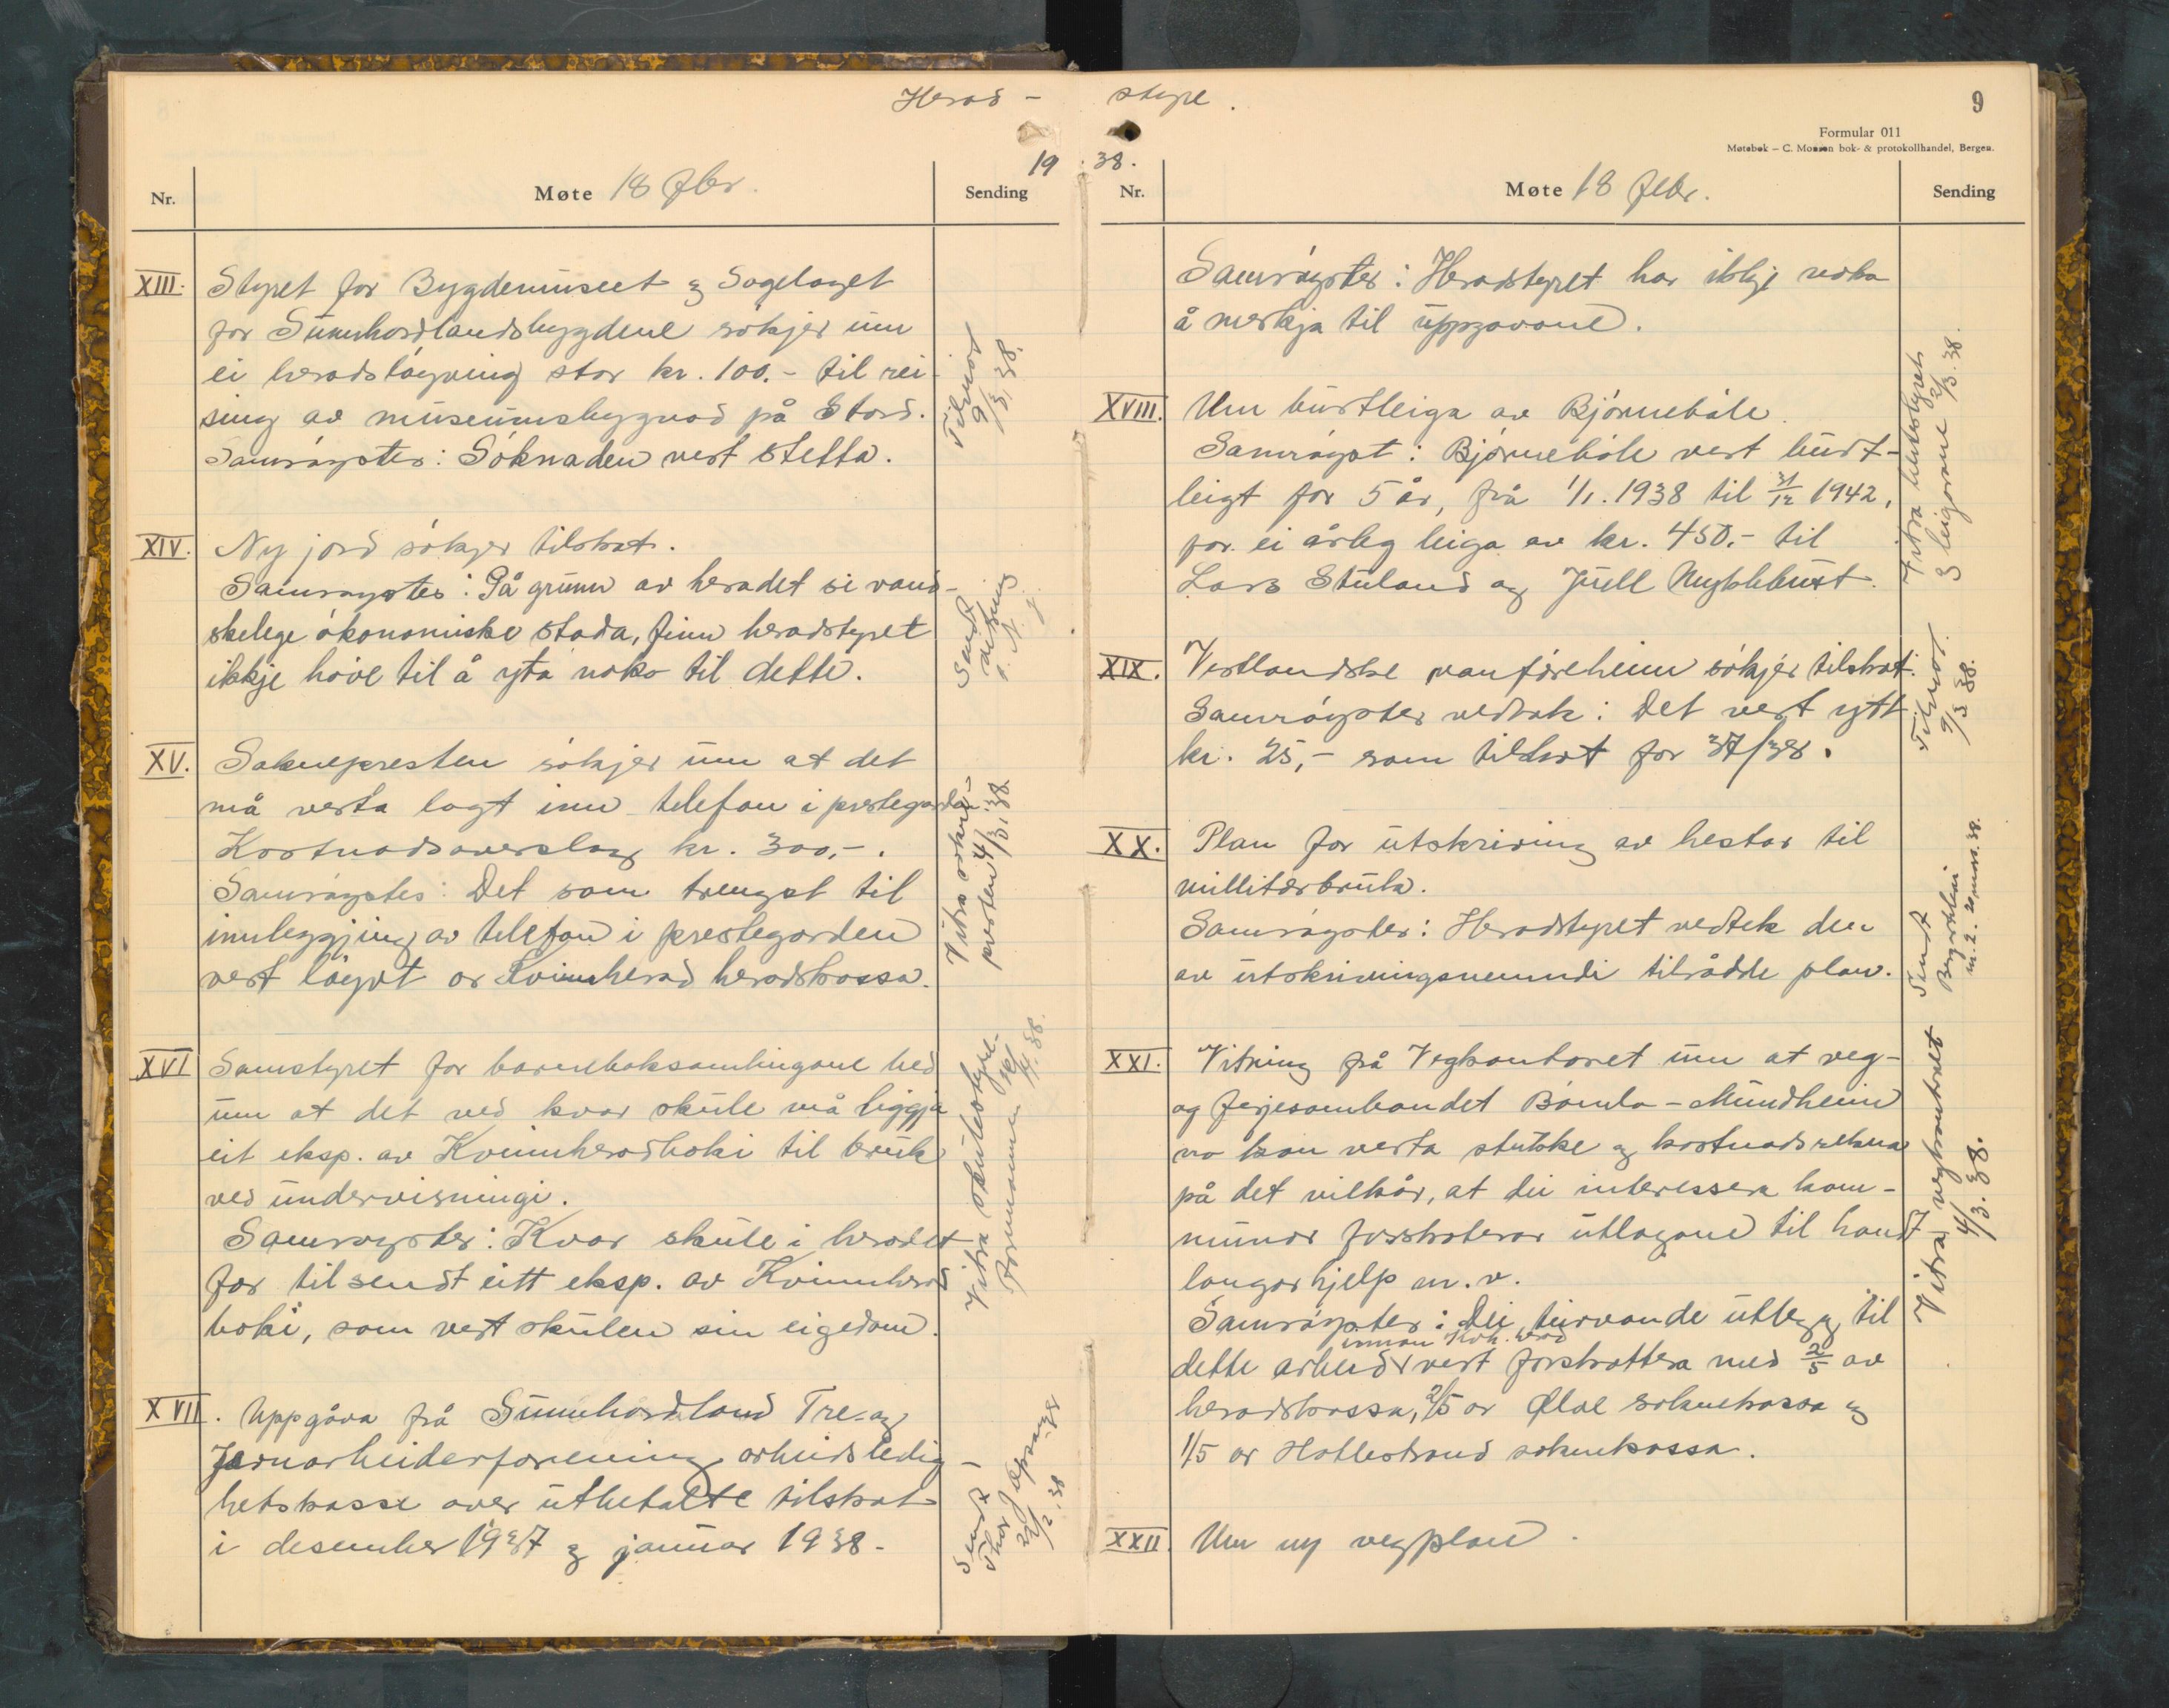 Herad-
Nr.
Møte 18 fbr.
Sending
19
XIII. Styret for Bygdemuseet og Sogelaget
for Sunnhordlandsbygdene søkjer um
ei heradsløyving stor kr. 100.- til rei-
sing av museumsbygnad på Stord.
Samrøystes: Søknaden vert stetta.
Tilvist
9/3.38.
XIV. Ny jord søkjer tilskot.
Samrøystes: På grunn av heradet si vand-
skelege økonomiske stoda, finn heradstyret
ikkje høve til å yta noko til dette.
Sendt
XV. Soknepresten søkjer um at det
må verta lagt inn telefon i prestegarden
Kostnadsoverslag kr. 300,-.
Samrøystes: Det som trengst til
innleggjing av telefon i prestegarden
vert løyvt or Kvinnherad heradskassa.
Vitra sokne-
presten 4/3.38.
XVI Samstyret for barneboksamlingane bed
um at det ved kvar skule må liggja
eit eksp. av Kvinnheradboki til bruk
ved undervisningi.
Samrøystes: Kvar skule i heradet
fær tilsendt eitt eksp. av Kvinnherad
boki, som vert skulen sin eigedom.
Vitra skulestyre-
formannen
XVII. Uppgåva frå Sunnhordland Tre- og
Jernarbeiderforening arbeidsledig-
hetskasse over utbetalte tilskot
i desember 1937 og januar 1938.-
Sendt
22/2.38
styre.
9
Formular 011
Møtebok – C. Monsen bok- & protokollhandel, Bergen.
38.
Nr.
Møte 18 febr.
Sending
Samrøystes: Heradstyret har ikkje noko
å merkja til uppgåvone.
XVIII. Um burtleiga av Bjørnebóle.
Samrøyst: Bjørnebóle vert burt-
leigt for 5 år, frå 1/1. 1938 til 31/12 1942,
for ei årleg leiga av kr. 450.- til
Lars Stuland og Juell Myklebust.
leigarane 2/3.38.
XIX. Vestlandske vanføreheim søkjer tilskot.
Samrøystes vedtak: Det vert ytt
kr. 25,- som tilskot for 37/38.
Tilvist.
9/3 38.
XX. Plan for utskriving av hestar til
millitærbruk.
Samrøystes: Heradstyret vedtek den
av utskrivingsnemndi tilrådde plan.
Sendt
m.2. 20. mars. 38.
XXI. Vitring frå Vegkontoret um at veg-
og ferjesambandet Bømlo-Mundheim
no kan verta stukke og kostnadsrekna
på det vilkår, at dei interessera kom-
munar forskoterar utlogone til handt
langarhjelp m.v.
Samrøystes: Dei turvande utlegg til
innan Kvh. herad
dette arbeid vert forskottera med 2/5 av
heradskassa, 2/5 or Ølve soknekassa og
1/5 or Hatlestrand soknekassa.
Vitra vegkontoret
4/3.38.
XXII Um ny vegplan.